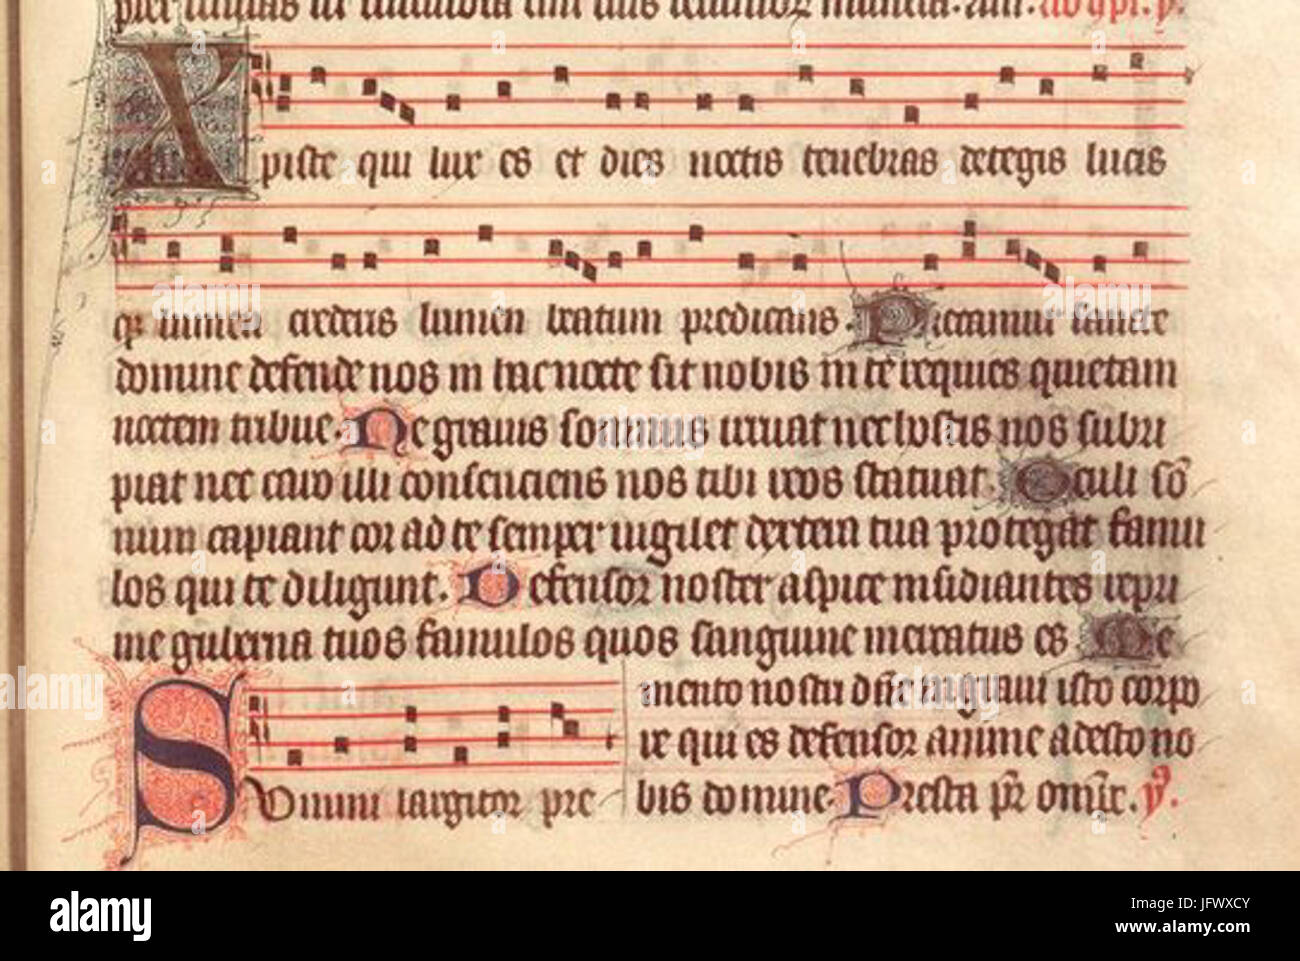 Xpiste qui lux es et dies noctis tenebras detegis lucis
qr lumen crederis lumen beatum predicans. Precamur sancte
domine defende nos in hac nocte sit nobis in te requies quietam
noctem tribue. Ne gravis somnus irruat nec hostis nos surri
piat nec caro illi consenciens nos tibi reos statuat. Oculi sō
num capiant cor ad te semper vigilet dextera tua protegat famu
los qui te diligunt. Defensor noster aspice insidiantes repri
me guberna tuos famulos quos sanguine mercatus es Me
mento nostri dn̄e in gravi isto corpo
re qui es defensor anime adesto no
bis domine. Presta pr̄ om̄ıc. ℣.
Sompni largitor pre
alamy
alamy stock photo
JFWXCY
www.alamy.com